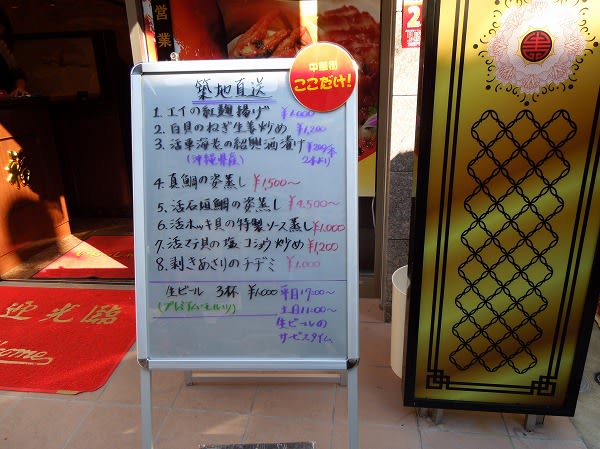 営業
中華街
ここだけ!
築地直送
1. エイの紅麹揚げ ¥1,000
2. 白貝のねぎ生姜炒め ¥1,200
3. 活車海老の紹興酒漬け
(沖縄県産) 2本より
4. 真鯛の姿蒸し ¥1500〜
5. 活石垣鯛の姿蒸し ¥4,500〜
6. 活ホッキ貝の特製ソース蒸し ¥1,000
7. 活マテ貝の塩コショウ炒め ¥1,200
8. 剥きあさりのチヂミ ¥1,000
生ビール 3杯 ¥1,000 平日17:00〜
(プレミアムモルツ) 土日11:00〜
生ビールの
サービスタイム
迎光臨